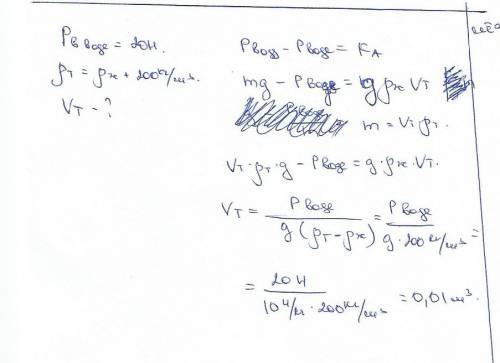 P в воде = 20Н.
ρт = ρж + 200 кг/м³.
Vт - ?
P возд - P воде = FА
mg - P воде = g ρж Vт
m = Vт ρт.
Vт · ρт · g - P воде = g · ρж · Vт.
Vт = P воде / g (ρт - ρж) = P воде / g · 200 кг/м³ =
= 20Н / 10 Н/кг · 200 кг/м³ = 0,01 м³.